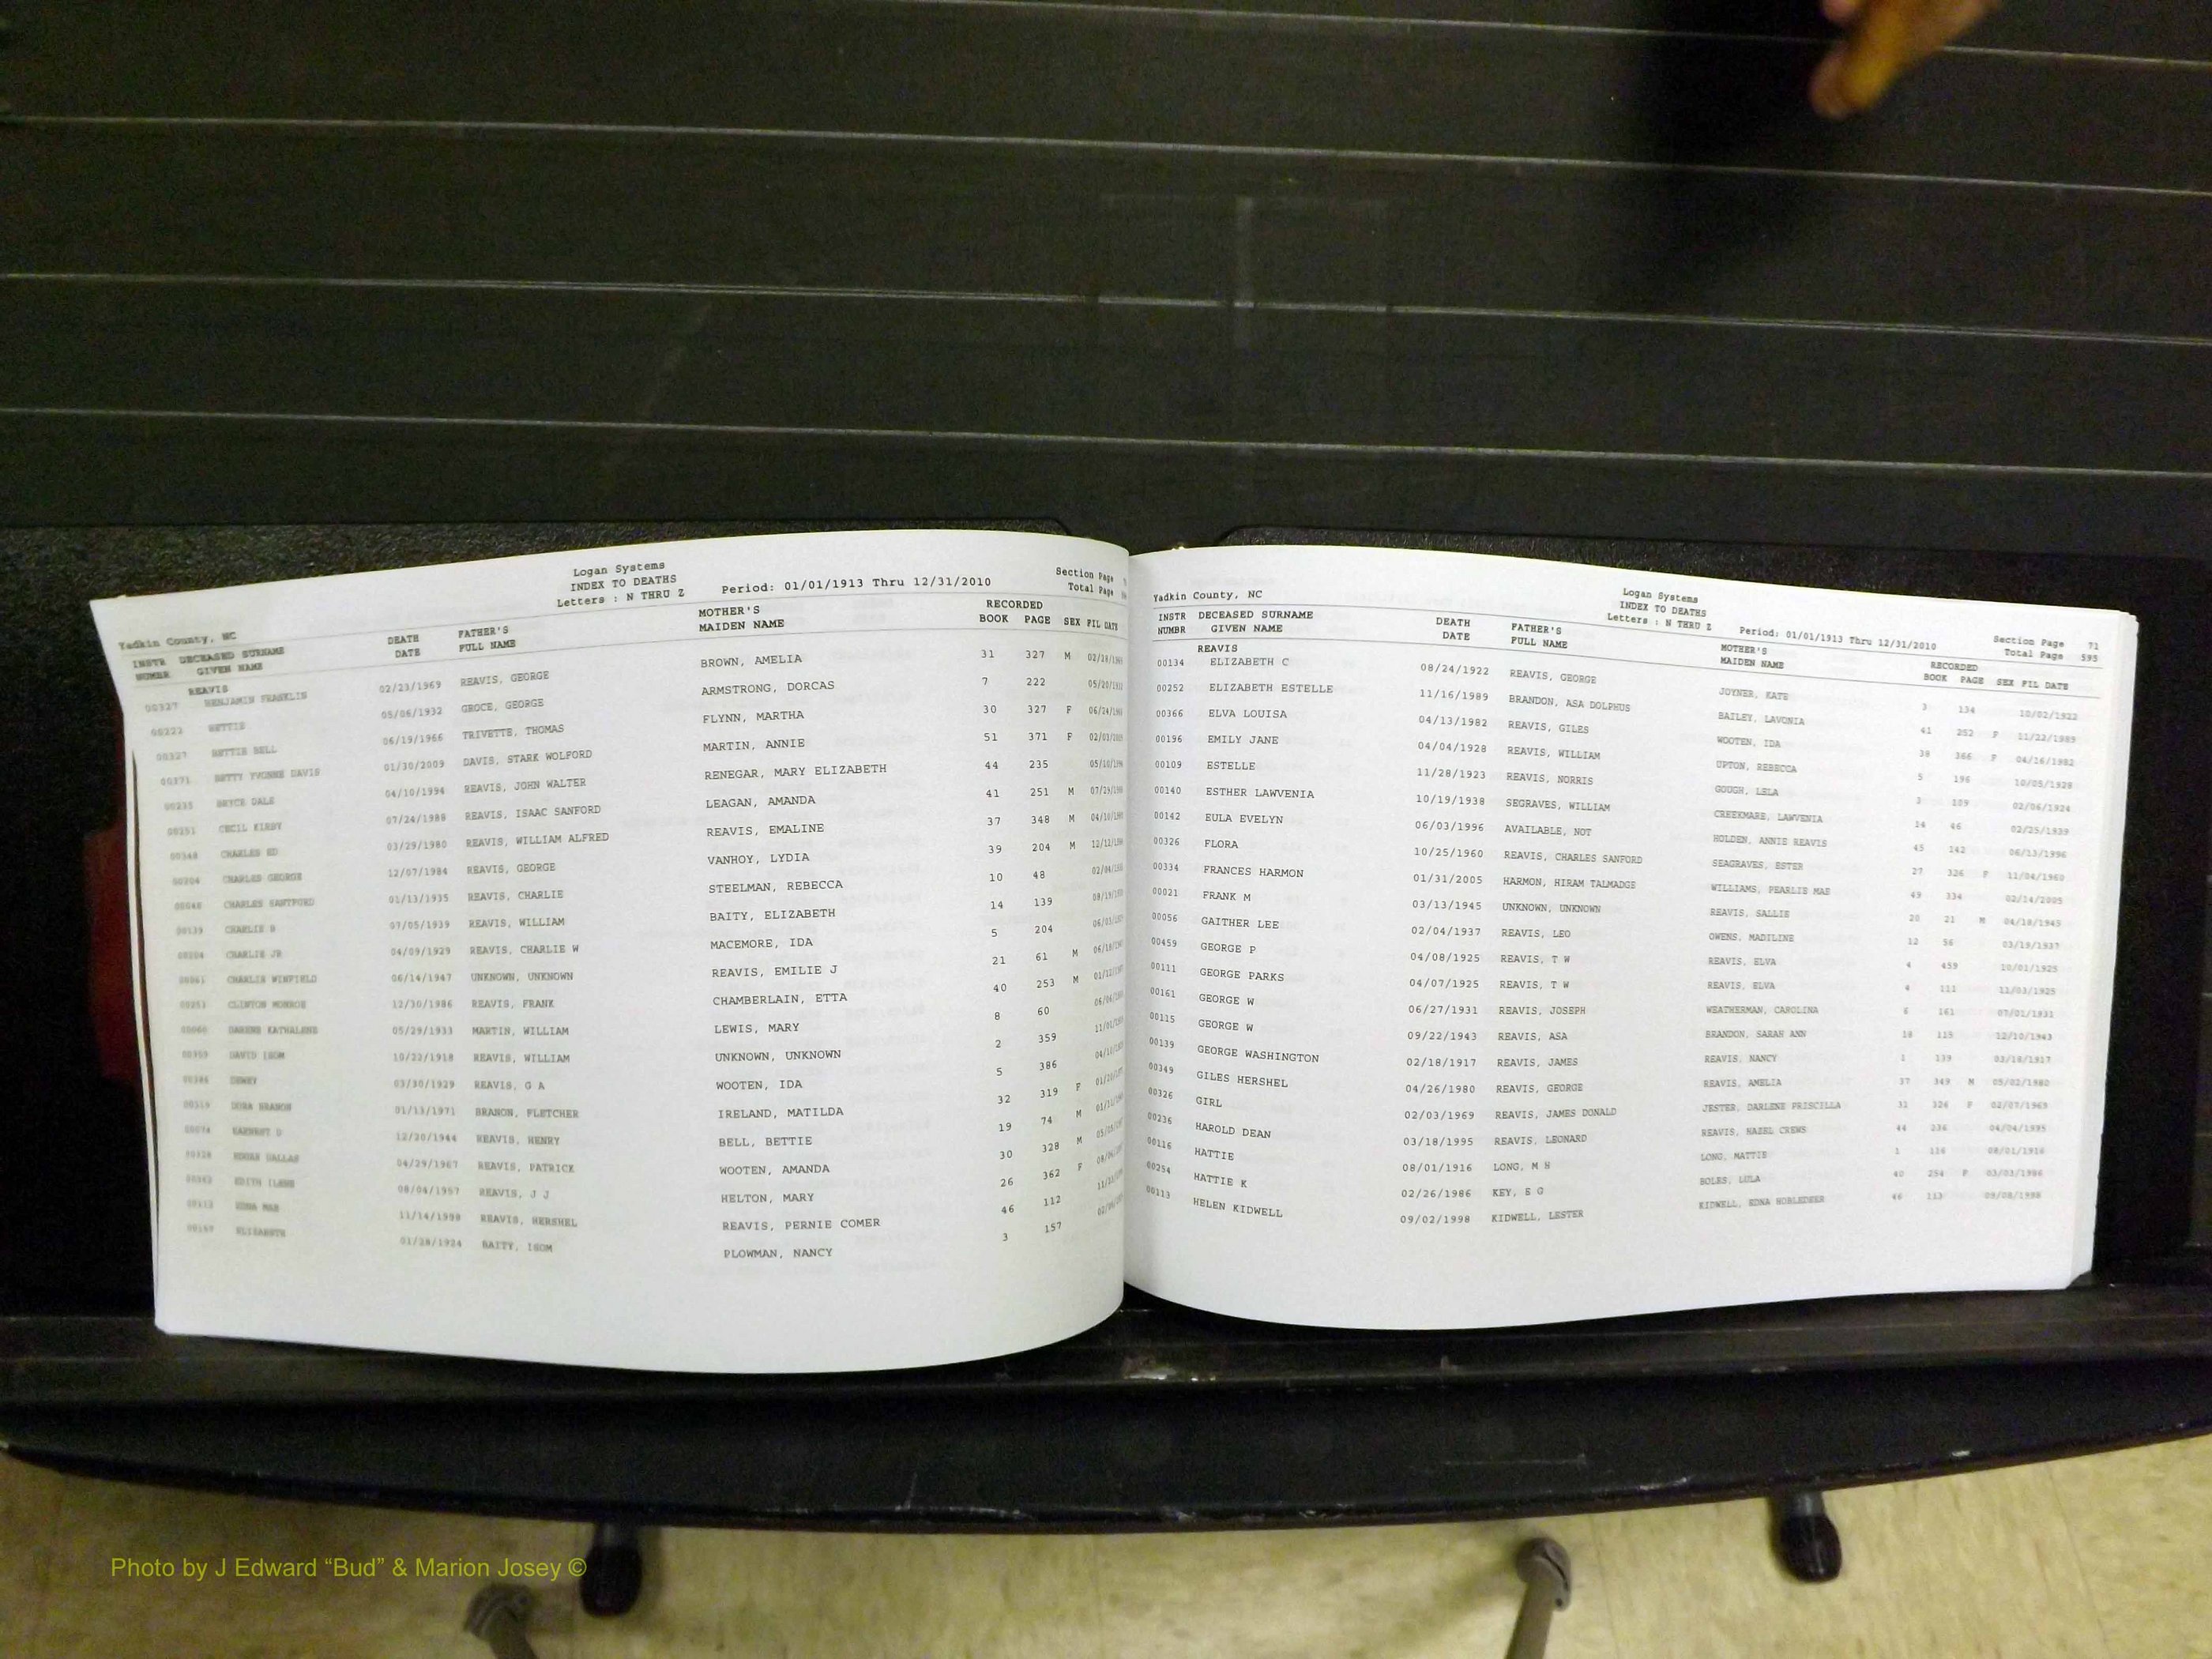 Logan Systems
INDEX TO DEATHS
Letters : N THRU Z
Period: 01/01/1913 Thru 12/31/2010
Section Page
Total Page
Yadkin County, NC
INSTR NUMBR DECEASED SURNAME GIVEN NAME DEATH DATE FATHER'S FULL NAME MOTHER'S MAIDEN NAME RECORDED BOOK PAGE SEX FIL DATE
REAVIS
00327 BENJAMIN FRANKLIN 02/23/1969 REAVIS, GEORGE BROWN, AMELIA 31 327 M
00222 BETTIE 05/06/1932 GROCE, GEORGE ARMSTRONG, DORCAS 7 222
00327 BETTIE BELL 06/19/1966 TRIVETTE, THOMAS FLYNN, MARTHA 30 327 F
00371 BETTY YVONNE DAVIS 01/30/2009 DAVIS, STARK WOLFORD MARTIN, ANNIE 51 371 F
00235 BRYCE DALE 04/10/1994 REAVIS, JOHN WALTER RENEGAR, MARY ELIZABETH 44 235
00251 CECIL KIRBY 07/24/1986 REAVIS, ISAAC SANFORD LEAGAN, AMANDA 41 251 M
00348 CHARLES ED 03/29/1980 REAVIS, WILLIAM ALFRED REAVIS, EMALINE 37 348 M
00204 CHARLES GEORGE 12/07/1984 REAVIS, GEORGE VANHOY, LYDIA 39 204 M
00048 CHARLES SANTFORD 01/13/1935 REAVIS, CHARLIE STEELMAN, REBECCA 10 48
00139 CHARLIE 07/05/1939 REAVIS, WILLIAM BAITY, ELIZABETH 14 139
00204 CHARLIE JR 04/09/1929 REAVIS, CHARLIE W MACEMORE, IDA 5 204
00061 CHARLIE WINFIELD 06/14/1947 UNKNOWN, UNKNOWN REAVIS, EMILIE J 21 61 M
00253 CLINTON MONROE 12/30/1986 REAVIS, FRANK CHAMBERLAIN, ETTA 40 253 M
00060 05/29/1933 MARTIN, WILLIAM LEWIS, MARY 8 60
00359 DAVID ISOM 10/22/1918 REAVIS, WILLIAM UNKNOWN, UNKNOWN 2 359
00386 DEWEY 03/30/1929 REAVIS, G A WOOTEN, IDA 5 386
00319 DORA BRANON 01/13/1971 BRANON, FLETCHER IRELAND, MATILDA 32 319 F
00074 12/20/1944 REAVIS, HENRY BELL, BETTIE 19 74 M
00328 DALLAS 04/29/1967 REAVIS, PATRICK WOOTEN, AMANDA 30 328 M
00362 EDITH 08/04/1957 REAVIS, J J HELTON, MARY 26 362 F
00112 EDNA MAE 11/14/1998 REAVIS, HERSHEL REAVIS, PERNIE COMER 46 112
00157 ELIZABETH 01/28/1924 BAITY, ISOM PLOWMAN, NANCY 3 157
Yadkin County, NC
Logan Systems
INDEX TO DEATHS
Letters : N THRU Z
Period: 01/01/1913 Thru 12/31/2010
Section Page 71
Total Page 595
INSTR NUMBR DECEASED SURNAME GIVEN NAME DEATH DATE FATHER'S FULL NAME MOTHER'S MAIDEN NAME RECORDED BOOK PAGE SEX FIL DATE
REAVIS
00134 ELIZABETH C 08/24/1922 REAVIS, GEORGE JOYNER, KATE 3 134 10/02/1922
00252 ELIZABETH ESTELLE 11/16/1989 BRANDON, ASA DOLPHUS BAILEY, LAVONIA 41 252 F 11/22/1989
00366 ELVA LOUISA 04/13/1982 REAVIS, GILES WOOTEN, IDA 38 366 F 04/16/1982
00196 EMILY JANE 04/04/1928 REAVIS, WILLIAM UPTON, REBECCA 5 196 10/05/1928
00109 ESTELLE 11/28/1923 REAVIS, NORRIS GOUGH, LELA 3 109 02/06/1924
00140 ESTHER LAWVENIA 10/19/1938 SEGRAVES, WILLIAM CREEKMARE, LAWVENIA 14 46 02/25/1939
00142 EULA EVELYN 06/03/1996 AVAILABLE, NOT HOLDEN, ANNIE REAVIS 45 142 06/13/1996
00326 FLORA 10/25/1960 REAVIS, CHARLES SANFORD SEAGRAVES, ESTER 27 326 F 11/04/1960
00334 FRANCES HARMON 01/31/2005 HARMON, HIRAM TALMADGE WILLIAMS, PEARLIE MAE 49 334 02/14/2005
00021 FRANK M 03/13/1945 UNKNOWN, UNKNOWN REAVIS, SALLIE 20 21 M 04/18/1945
00056 GAITHER LEE 02/04/1937 REAVIS, LEO OWENS, MADILINE 12 56 03/19/1937
00459 GEORGE P 04/08/1925 REAVIS, T W REAVIS, ELVA 4 459 10/01/1925
00111 GEORGE PARKS 04/07/1925 REAVIS, T W REAVIS, ELVA 4 111 11/03/1925
00161 GEORGE W 06/27/1931 REAVIS, JOSEPH WEATHERMAN, CAROLINA 6 161 07/01/1931
00115 GEORGE W 09/22/1943 REAVIS, ASA BRANDON, SARAH ANN 18 115 12/10/1943
00139 GEORGE WASHINGTON 02/18/1917 REAVIS, JAMES REAVIS, NANCY 1 139 03/18/1917
00349 GILES HERSHEL 04/26/1980 REAVIS, GEORGE REAVIS, AMELIA 37 349 M 05/02/1980
00326 GIRL 02/03/1969 REAVIS, JAMES DONALD JESTER, DARLENE PRISCILLA 31 326 F 02/07/1969
00236 HAROLD DEAN 03/18/1995 REAVIS, LEONARD REAVIS, HAZEL CREWS 44 236 04/04/1995
00116 HATTIE 08/01/1916 LONG, M H LONG, MATTIE 1 116 08/01/1916
00254 HATTIE K 02/26/1986 KEY, E G BOLES, LULA 40 254 F 03/03/1986
00113 HELEN KIDWELL 09/02/1998 KIDWELL, LESTER KIDWELL, EDNA 46 113 09/08/1998
Photo by J Edward “Bud” & Marion Josey ©